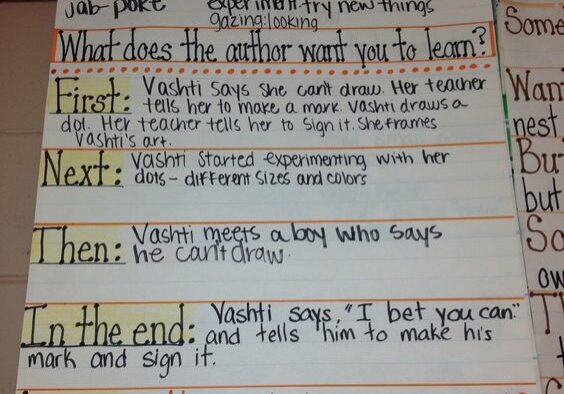 jab-poke experiment: try new things
gazing: looking
What does the author want you to learn?
First: Vashti says she can't draw. Her teacher
tells her to make a mark. Vashti draws a
dot. Her teacher tells her to sign it. She frames
Vashti's art.
Next: Vashti started experimenting with her
dots - different sizes and colors
Then: Vashti meets a boy who says
he can't draw.
In the end: Vashti says, "I bet you can."
and tells him to make his
mark and sign it.
Some
Wan
nest
Bu
but
So
ow
T